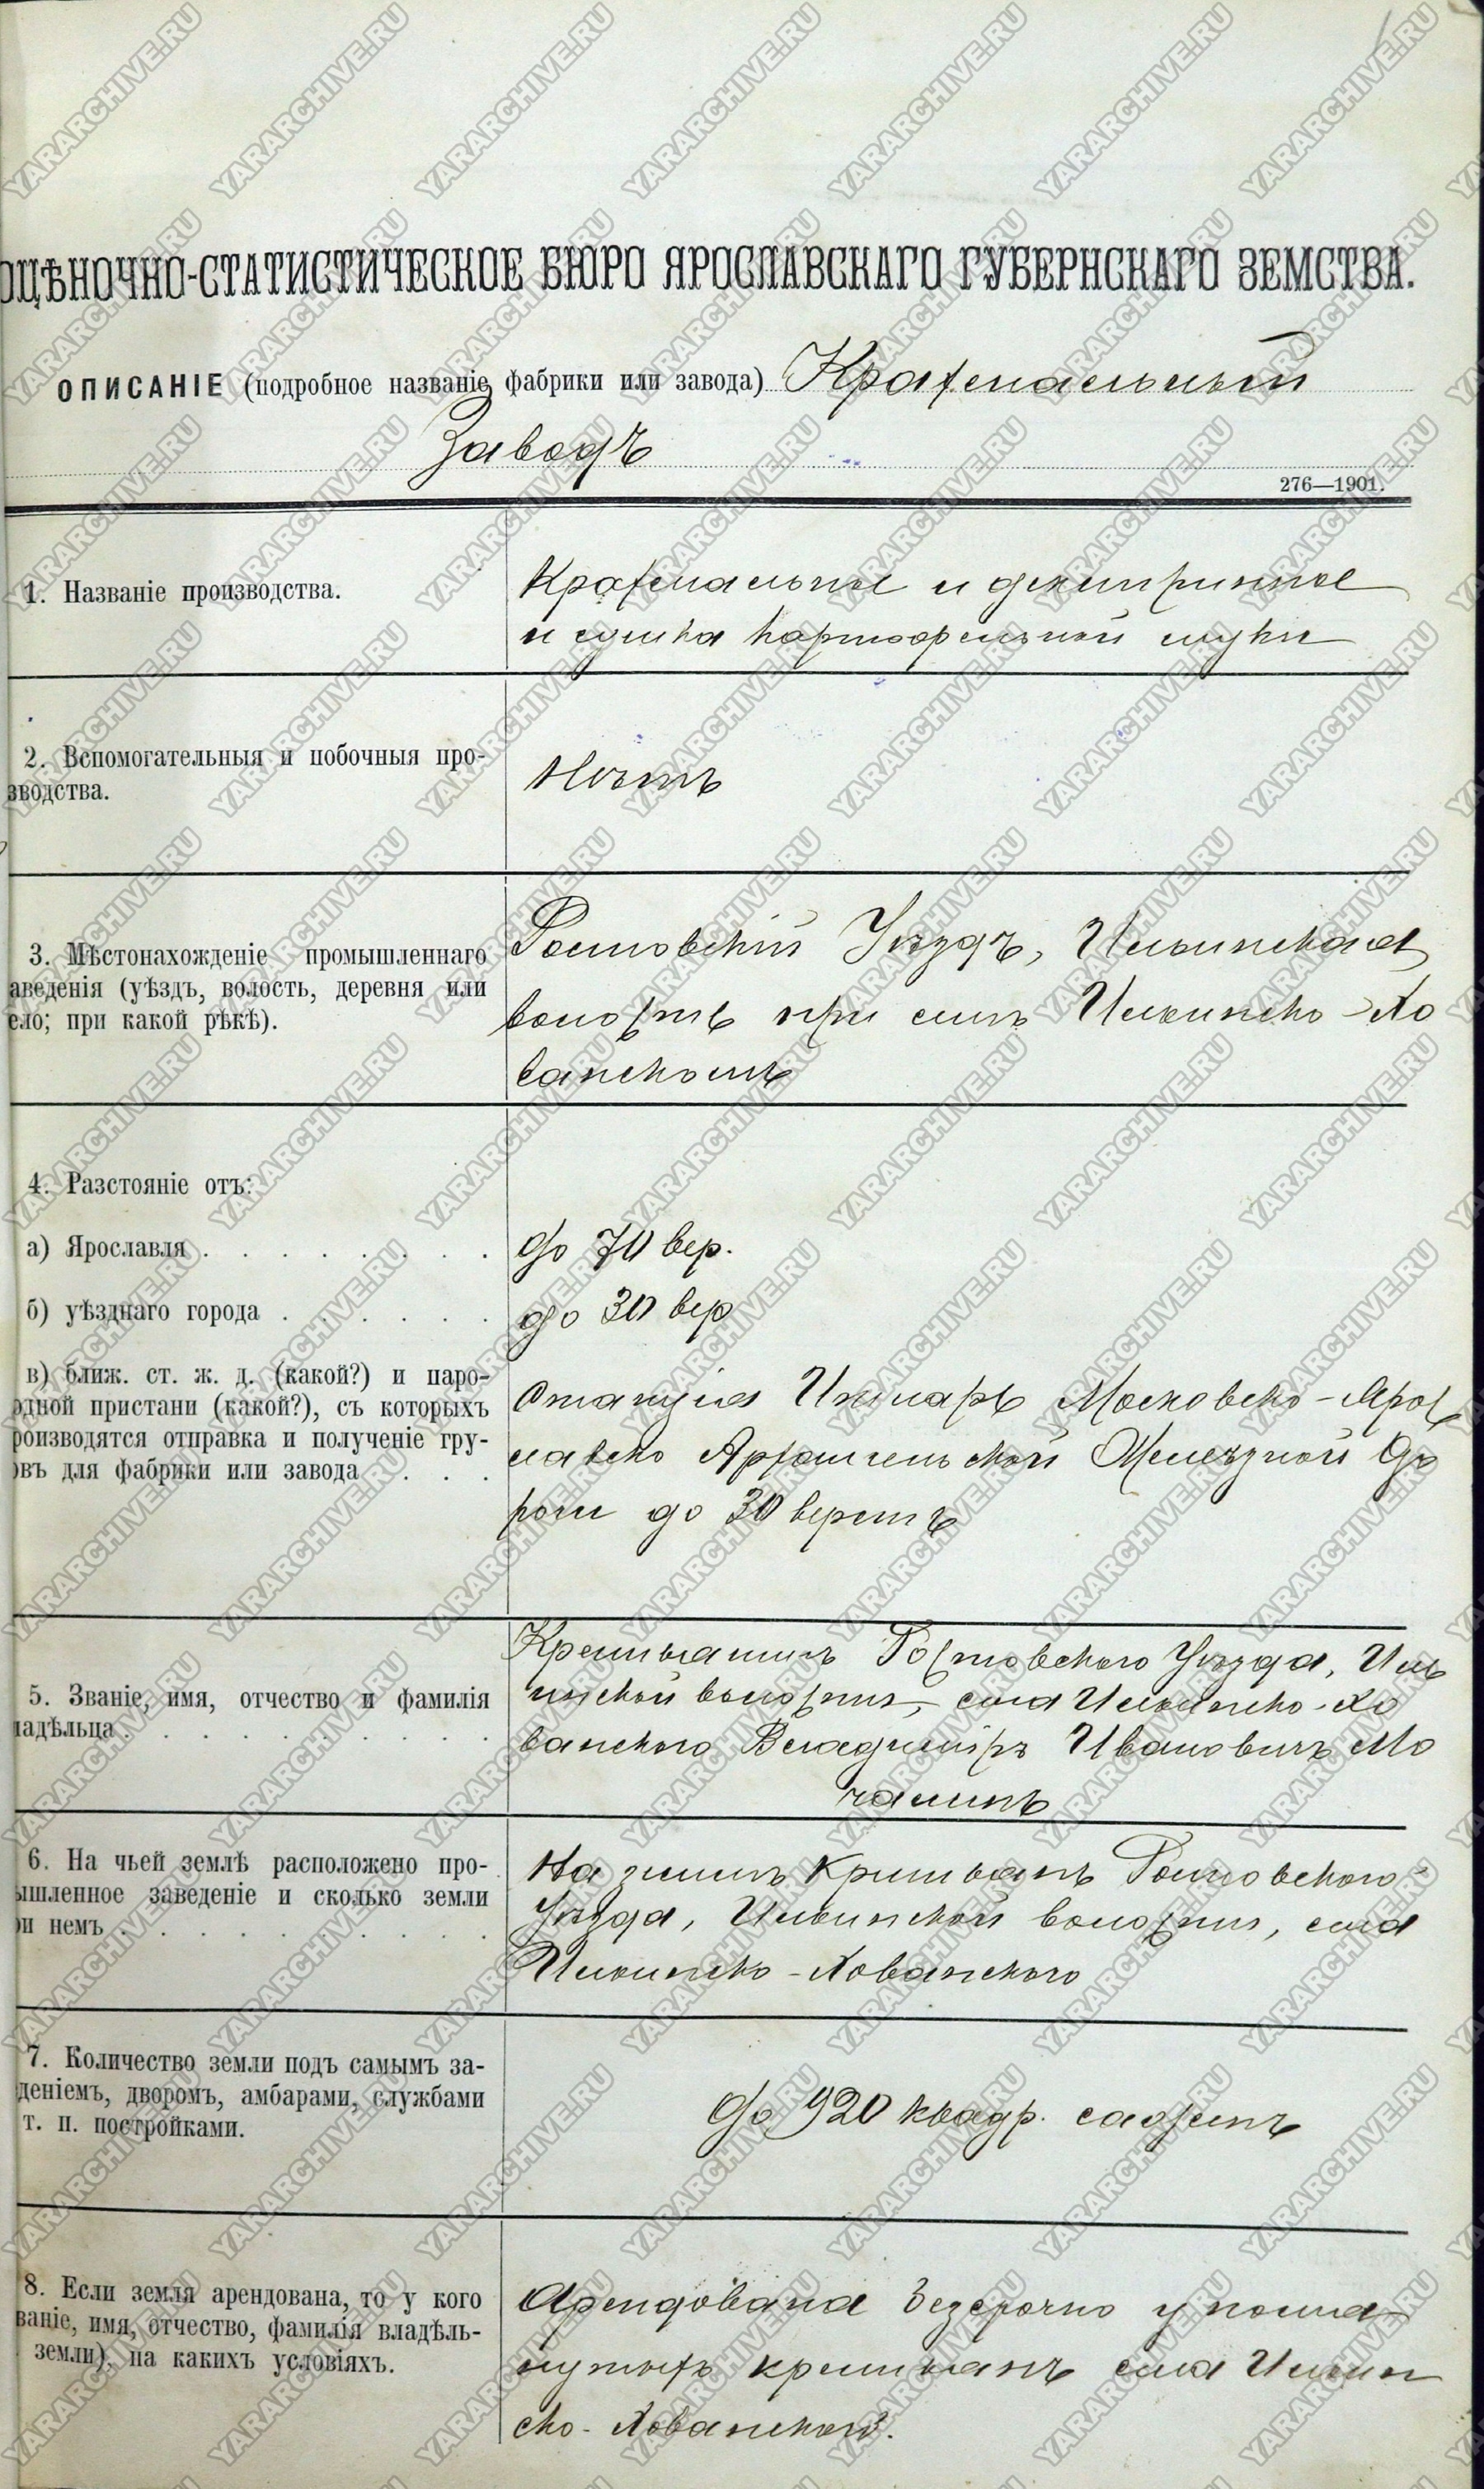 ОЦѢНОЧНО-СТАТИСТИЧЕСКОЕ БЮРО ЯРОСЛАВСКАГО ГУБЕРНСКАГО ЗЕМСТВА.
ОПИСАНІЕ (подробное названіе фабрики или завода) Крахмальный
Заводъ
276—1901.
1. Названіе производства.
Крахмальное и декстринное
и сушка картофельной муки
2. Вспомогательныя и побочныя про-
зводства.
Нѣтъ
3. Мѣстонахожденіе промышленнаго
аведенія (уѣздъ, волость, деревня или
ело; при какой рѣкѣ).
Ростовскій Уѣздъ, Ильинская
волость при селѣ Ильинско-Хо
ванскомъ
4. Разстояніе отъ:
а) Ярославля . . . . . . . .
до 70 вер.
б) уѣзднаго города . . . . . .
до 30 вер
в) ближ. ст. ж. д. (какой?) и паро-
одной пристани (какой?), съ которыхъ
роизводятся отправка и полученіе гру-
овъ для фабрики или завода . . .
Станція Итларь Московско-Ярос
лавско Архангельской Желѣзной До
роги до 30 верстъ
5. Званіе, имя, отчество и фамилія
ладѣльца . . . . . . . . . .
Крестьянинъ Ростовскаго Уѣзда, Иль
инской волости, села Ильинско-Хо
ванскаго Владиміръ Ивановичъ Мо
чалинъ
6. На чьей землѣ расположено про-
ышленное заведеніе и сколько земли
ри немъ . . . . . . . . . .
На землѣ Крестьянъ Ростовскаго
Уѣзда, Ильинской волости, села
Ильинско-Хованскаго
7. Количество земли подъ самымъ за-
деніемъ, дворомъ, амбарами, службами
т. п. постройками.
До 920 квадр. саженъ
8. Если земля арендована, то у кого
ваніе, имя, отчество, фамилія владѣль-
земли), на какихъ условіяхъ.
Арендована безсрочно у помя-
нутыхъ крестьянъ села Ильин
ско-Хованскаго.
YARARCHIVE.RU